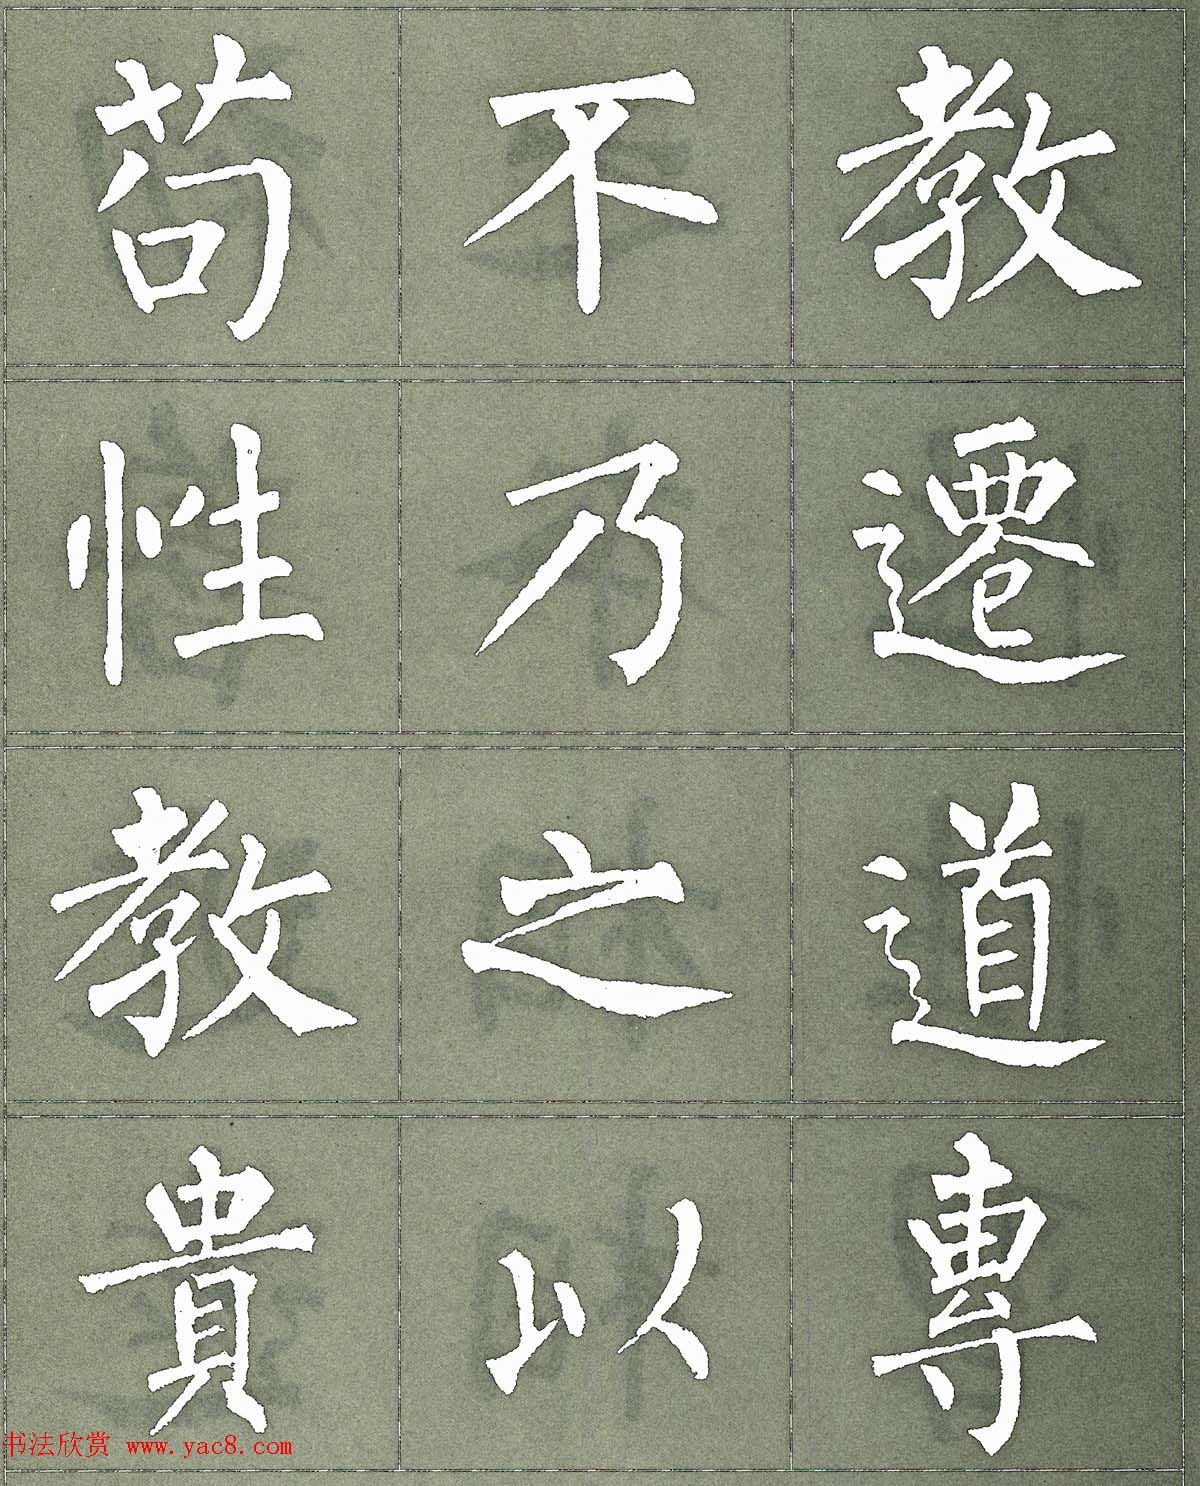 苟不教
性乃遷
教之道
貴以專
书法欣赏 www.yac8.com